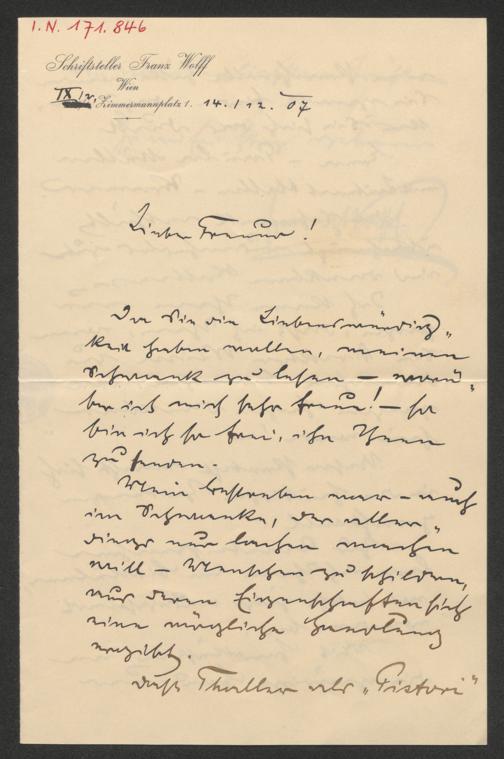 I.N. 171.846
Schriftsteller Franz Wolff
Wien
IX/2, Zimmermannplatz 1. 14./12. 07
Lieber Freund!
Da Sie die Liebenswürdig„
keit haben wollen, meinen
Schwank zu lesen – worü„
ber ich mich sehr freue! – so
bin ich so frei, ihn Ihnen
zu senden.
Mein Bestreben war – auch
im Schwanke, der aller„
dings nur lachen machen
will – Menschen zu schildern,
aus deren Eigenschaften sich
eine mögliche Handlung
ergibt.
Daß Thaller als „Pistori"